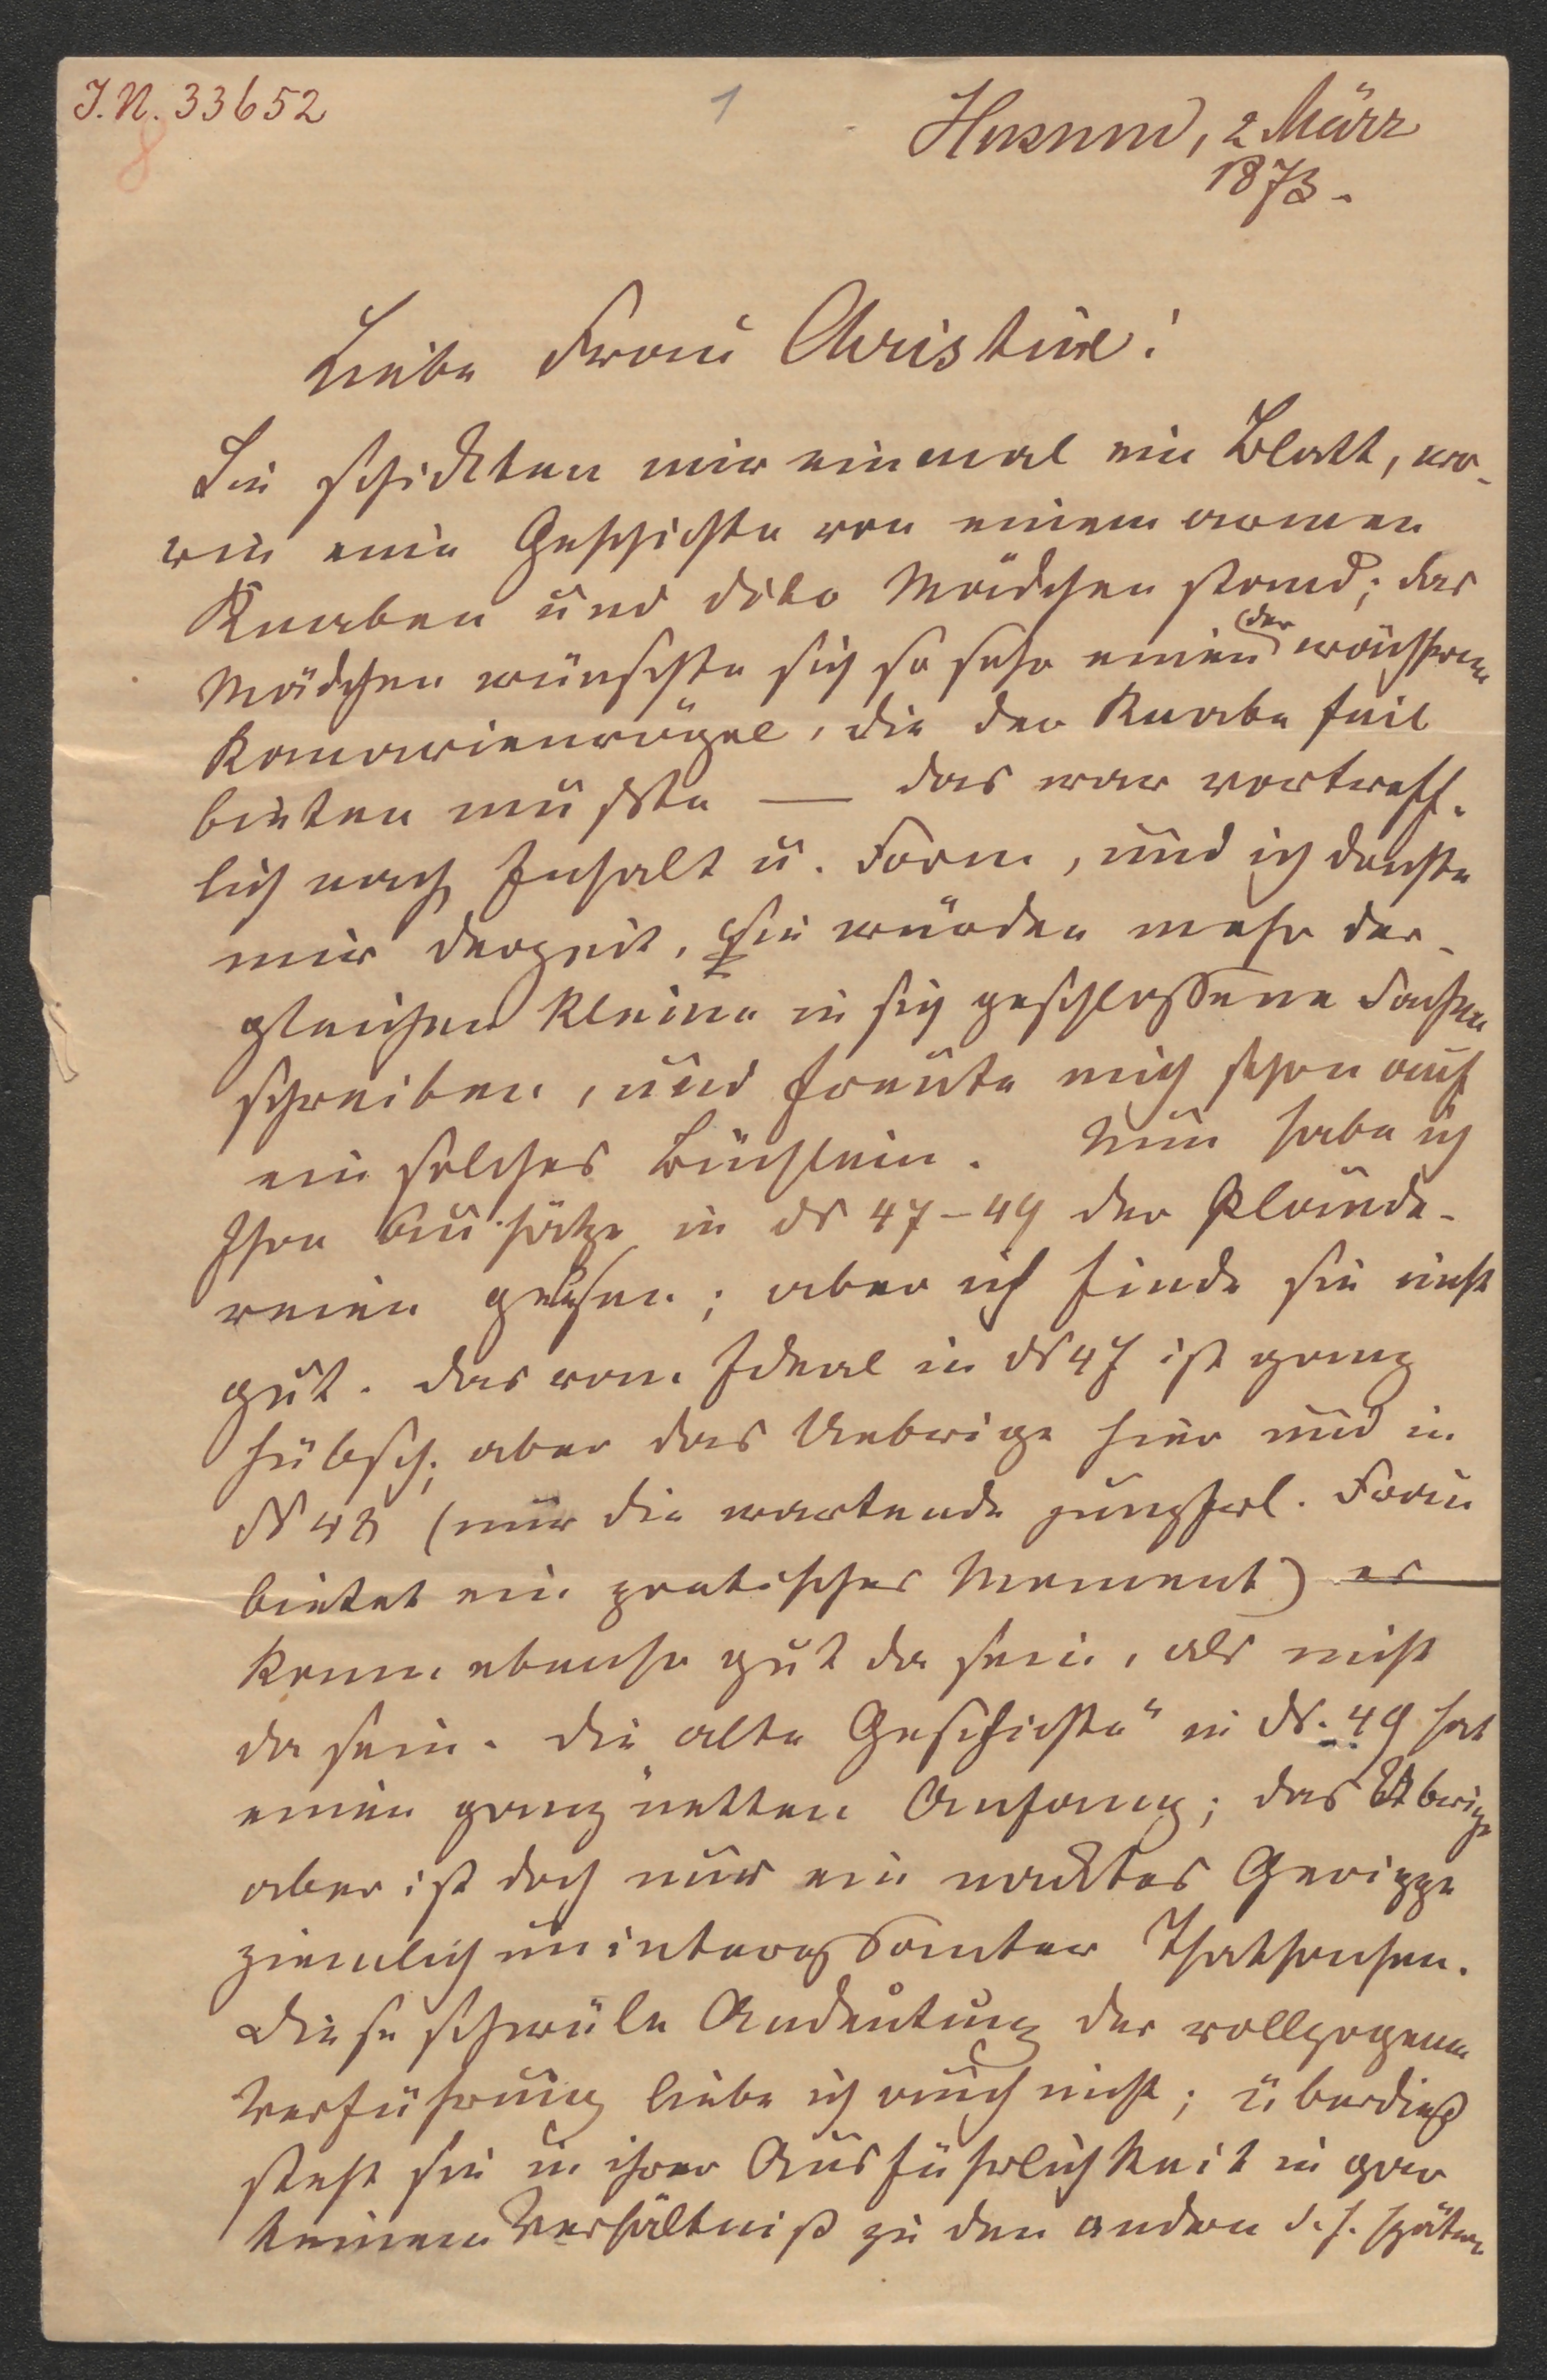 J. N. 33652
8
1
Husum, 2 März
1873.
Liebe Frau Christine!
Sie schickten mir einmal ein Blatt, wo-
rin eine Geschichte von einem armen
Knaben und dito Mädchen stand; das
Mädchen wünschte sich so sehr einen der
Kanarienvögel, die der Knabe feil
bieten mußte — das war vortreff-
lich nach Inhalt u. Form, und ich dachte
mir derzeit, Sie würden mehr der-
gleichen kleine in sich geschlossene Sachen
schreiben, und freute mich schon auf
ein solches Büchlein. Nun habe ich
Ihre Aufsätze in N 47-49 der Plaude-
reien gelesen; aber ich finde sie nicht
gut. Das vom Ideal in N 47 ist ganz
hübsch; aber das Uebrige hier und in
N 48 (nur die wartende jungfrl. Frau
bietet ein poetisches Moment) es
kann ebenso gut da sein, als nicht
da sein. Die alte Geschichte" in N. 49 hat
einen ganz netten Anfang; das Übrige
aber ist doch nur ein nacktes Gerippe
ziemlich uninteressanter Thatsachen.
Diese schwüle Andeutung der vollzogenen
Verführung liebe ich auch nicht; überdieß
steht sie in ihrer Ausführlichkeit in gar
keinem Verhältniß zu den andern d. h. spätern